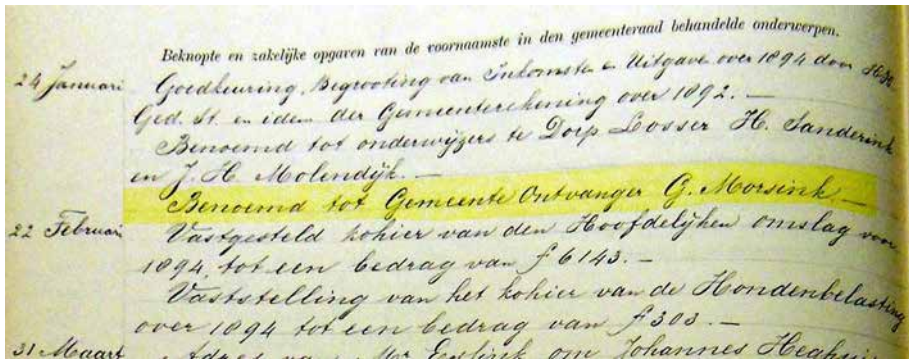 Beknopte en zakelijke opgaven van de voornaamste in den gemeenteraad behandelde onderwerpen.
24 Januari Goedkeuring, Begrooting van Inkomsten en Uitgaven over 1894 door
Ged. St. en idem der Gemeenterekening over 1892. —
Benoemd tot onderwijzers te Dorp Losser H. Sanderink
en J. H. Molendijk. —
Benoemd tot Gemeente Ontvanger G. Morsink. —
22 Februari Vastgesteld kohier van den Hoofdelijken omslag voor
1894, tot een bedrag van f 6143. —
Vaststelling van het kohier van de Hondenbelasting
over 1894 tot een bedrag van f 303. —
31 Maart Adres van Mr om Johannes